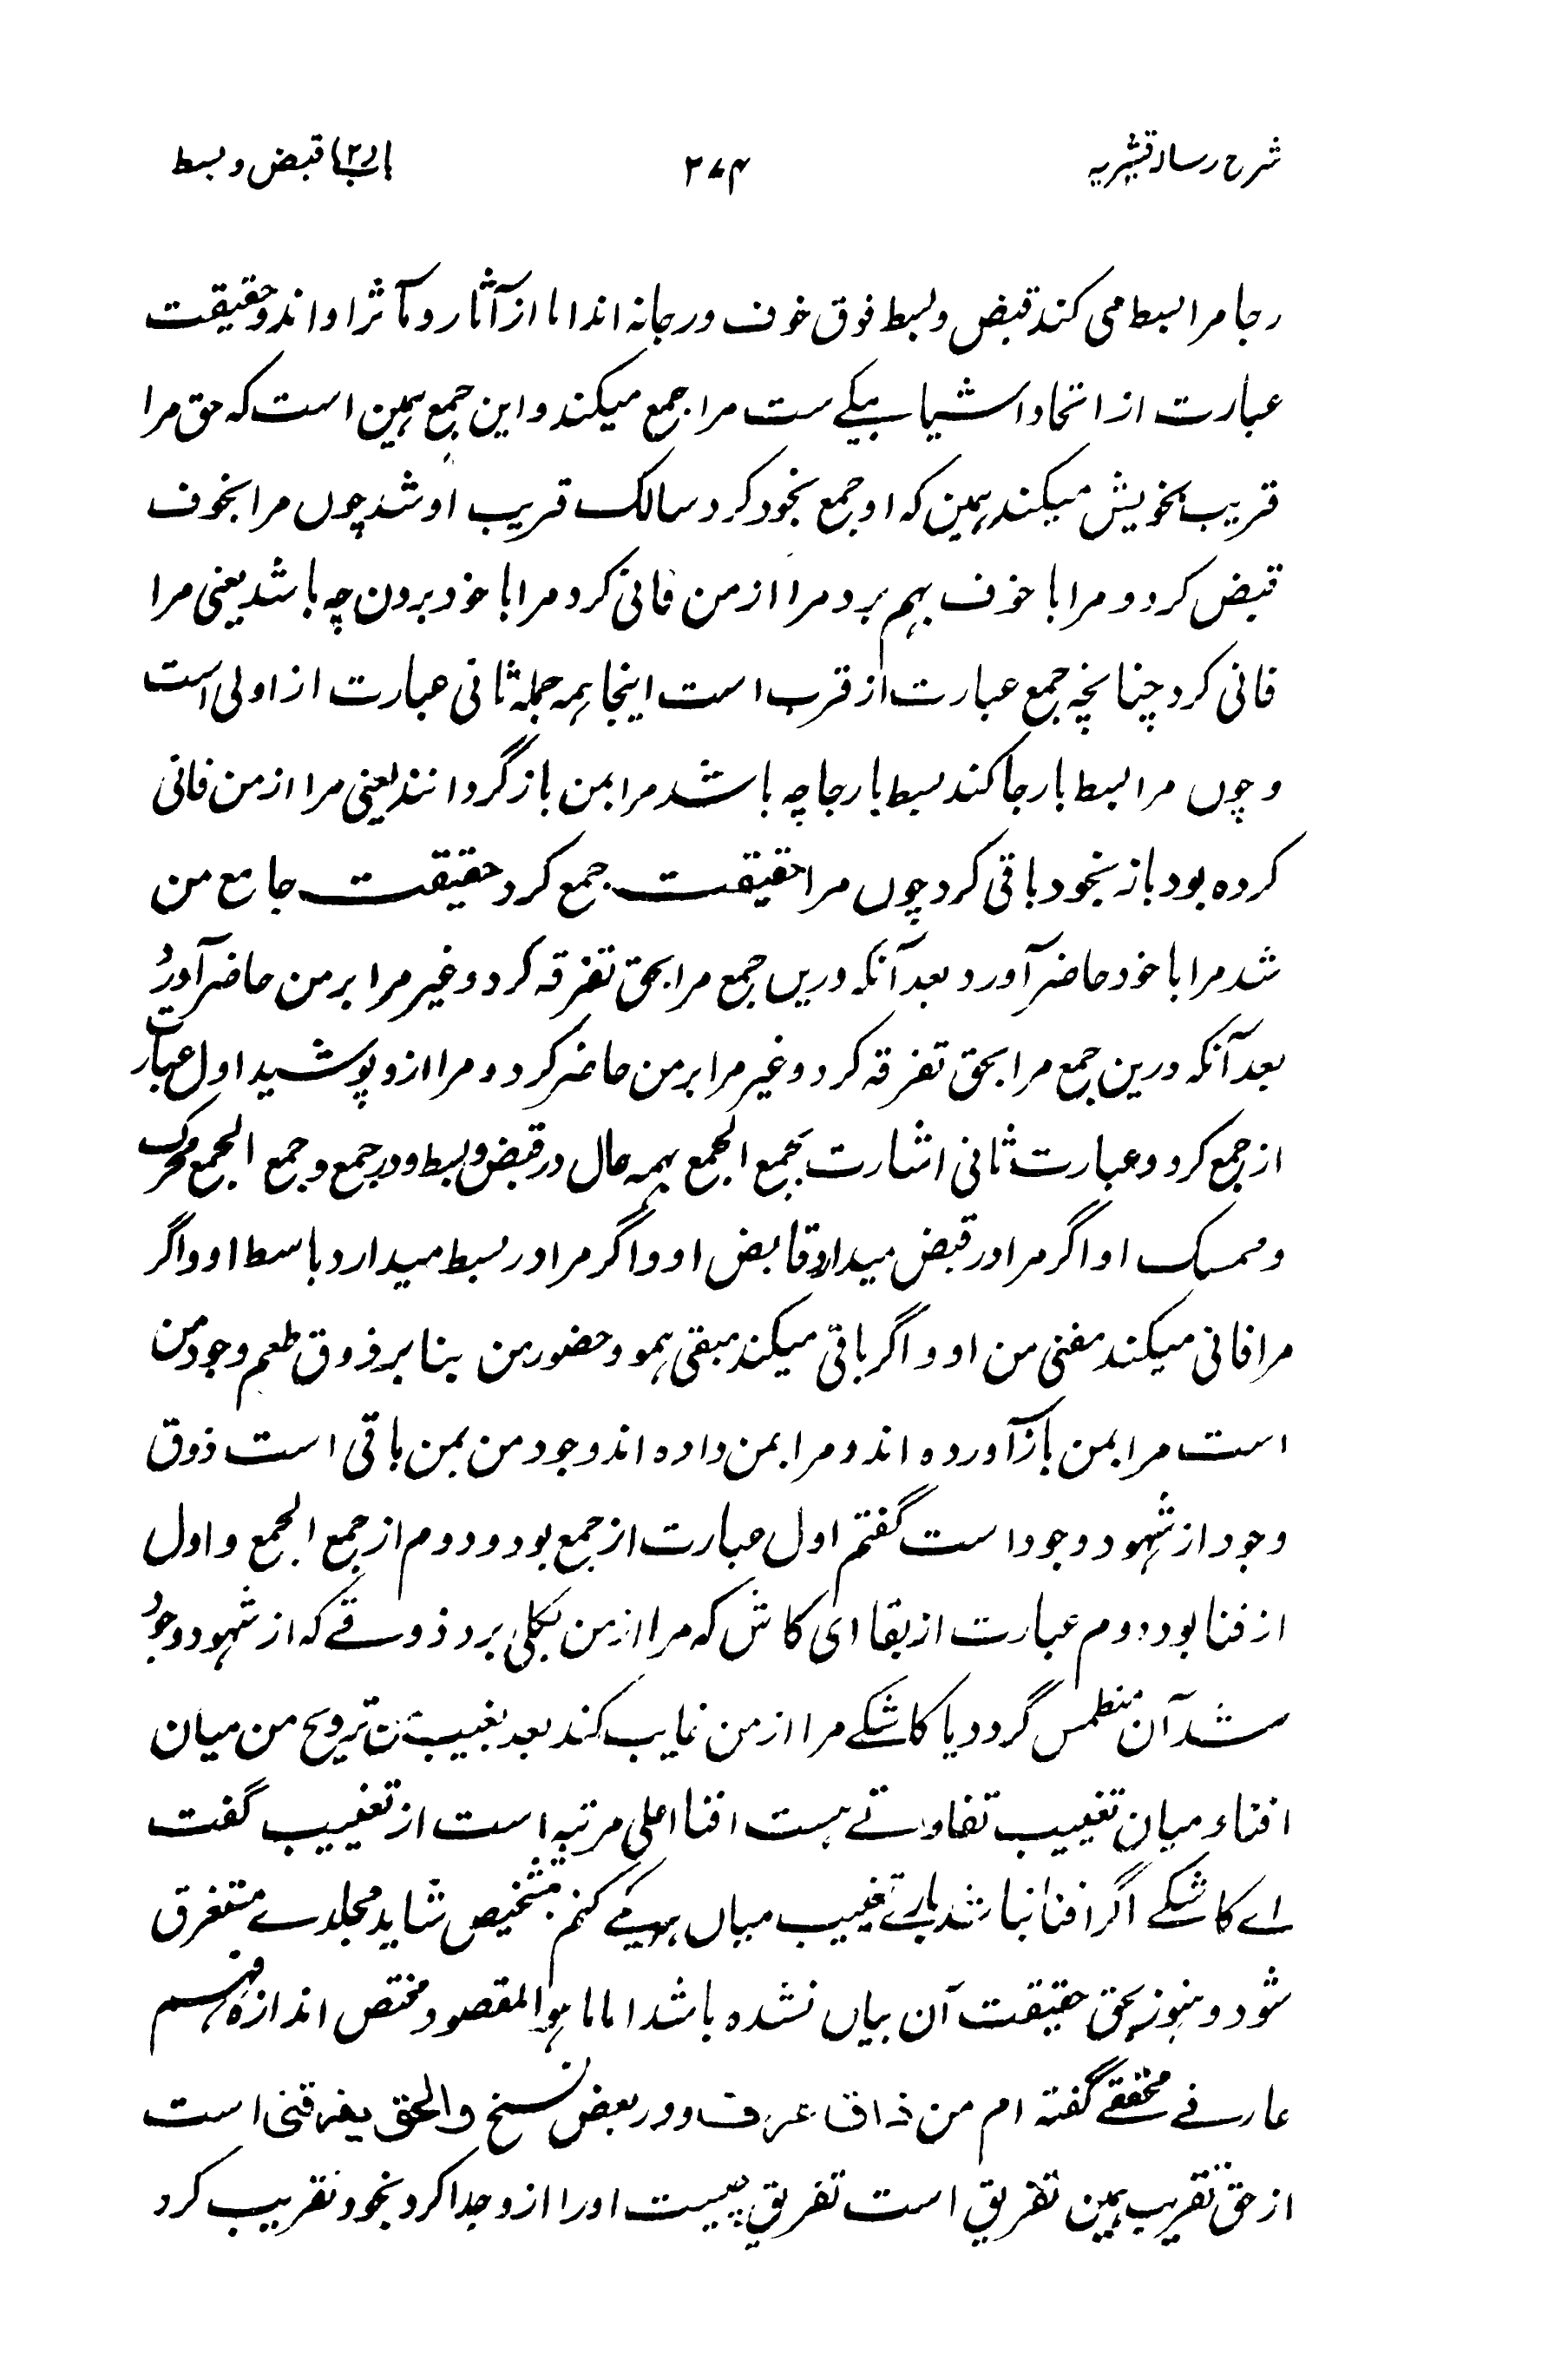 شرح رسالہ قشیریہ ۲۷۴ باب (۲) قبض و بسط
رجا مرا بسط می کند قبض و بسط فوق خوف و رجا نہ اند اما از آثار و مآثر او اند و حقیقت
عبارت از اتحاد اشیا بیکے ست مرا جمع میکند و این جمع ہمین است کہ حق مرا
قریب بخویش میکند ہمین کہ او جمع بخود کرد سالک قریب او شد چوں مرا بخوف
قبض کرد و مرا با خوف بہم برد مرا از من فانی کرد مرا با خود بردن چہ باشد یعنی مرا
فانی کرد چنانچہ جمع عبارت از قرب است اینجا ہمہ جملہ ثانی عبارت از اولی است
و چوں مرا بسط با رجا کند بسط با رجا چہ باشد مرا بمن باز گردانند یعنی مرا از من فانی
کردہ بود باز بخود باقی کرد چوں مرا حقیقت جمع کرد حقیقت جامع من
شد مرا با خود حاضر آورد بعد آنکہ دریں جمع مرا بحق تفرقہ کرد و غیر مرا بر من حاضر آورد
بعد آنکہ درین جمع مرا بحق تفرقہ کرد و غیر مرا بر من حاضر کرد و مرا ازو پوشید اول عبارت
از جمع کرد و عبارت ثانی اشارت بجمع الجمع بہمہ حال در قبض و بسط و در جمع و جمع الجمع محرک
و ممسک او اگر مرا در قبض میدارد قابض او و اگر مرا در بسط میدارد باسط او و اگر
مرا فانی میکند مفنی من او و اگر باقی میکند مبقی ہمو و حضور من بنا بر ذوق طعم وجود من
است مرا بمن باز آوردہ اند و مرا بمن دادہ اند وجود من بمن باقی است ذوق
وجود از شہود وجود است گفتم اول عبارت از جمع بود و دوم از جمع الجمع و اول
از فنا بود دوم عبارت از بقا ای کاش کہ مرا از من بکلی برد ذوقے کہ از شہود وجود
شد آن منطمس گردد یا کاشکے مرا از من غایب کند بعد بغیبت ترویح من میان
افناء میان تغییب تفاوتے ہست افنا اعلی مرتبہ است از تغییب گفت
اے کاشکے اگر افنا نباشد بارے تغییب میاں ہریکے کنم بتشخیص شاید مجلدے مستغرق
شود و ہنوز بحق حقیقت آن بیاں نشدہ باشد اما ما ہو المقصود مختص اندازہ فہم
عارفے محققے گفتہ ام من ذاق عرف و در بعض نسخ والحق یفرقنی است
از حق تقریب ہمین تفریق است تفریق چیست اورا ازو جدا کرد بخود تقریب کرد